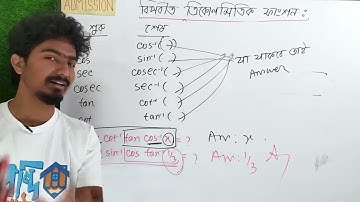 ADMISSION
বিপরীত ত্রিকোণমিতিক ফাংশন:
শুরু শেষ
cos⁻¹( )
sin⁻¹( )
sec cosec⁻¹( )
cosec sec⁻¹( )
tan cot⁻¹( )
cot tan⁻¹( )
যা থাকবে তাই
Answer
cot⁻¹ tan cos⁻¹ x = ? Ans: x.
sin⁻¹ cos tan⁻¹ 1/3 = ? Ans: 1/3